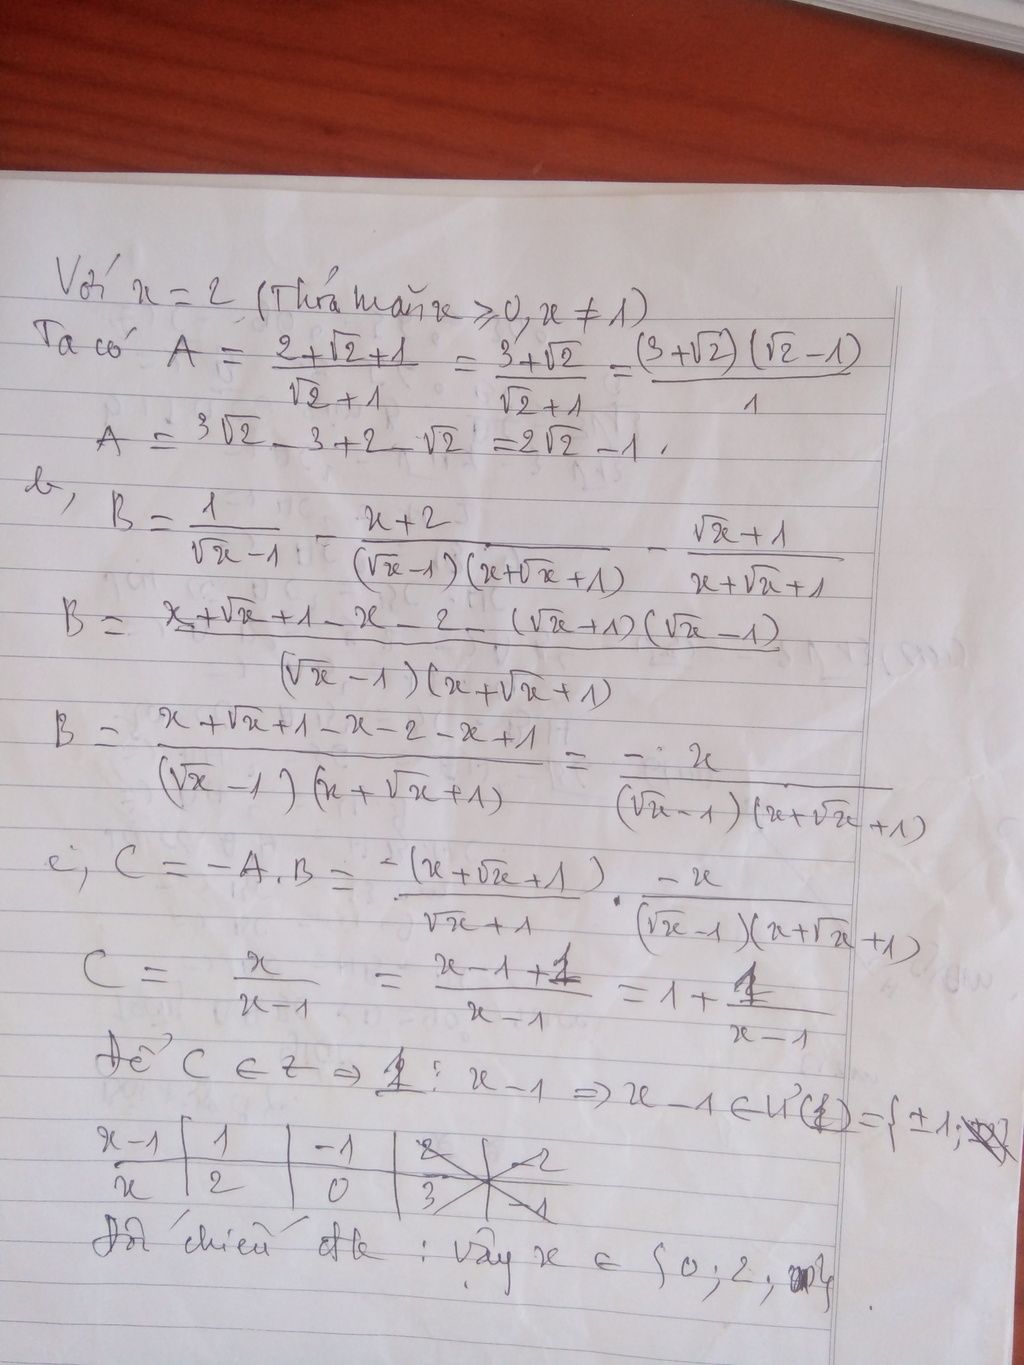 Với x = 2 (Thỏa mãn x ⩾ 0, x ≠ 1)
Ta có A = (2+√2+1)/(√2+1) = (3+√2)/(√2+1) = ((3+√2)(√2-1))/1
A = 3√2 - 3 + 2 - √2 = 2√2 - 1.
b, B = 1/(√x-1) - (x+2)/((√x-1)(x+√x+1)) - (√x+1)/(x+√x+1)
B = (x+√x+1-x-2-(√x+1)(√x-1))/((√x-1)(x+√x+1))
B = (x+√x+1-x-2-x+1)/((√x-1)(x+√x+1)) = -x/((√x-1)(x+√x+1))
c, C = -A.B = -(x+√x+1)/(√x+1) . -x/((√x-1)(x+√x+1))
C = x/(x-1) = (x-1+1)/(x-1) = 1 + 1/(x-1)
Để C ∈ Z ⇒ 1 ⋮ x-1 ⇒ x-1 ∈ Ư(1) = {±1;
x-1 | 1 | -1 | 2 | -2
x | 2 | 0 | 3 | -1
Đối chiếu đk : vậy x ∈ {0; 2; }